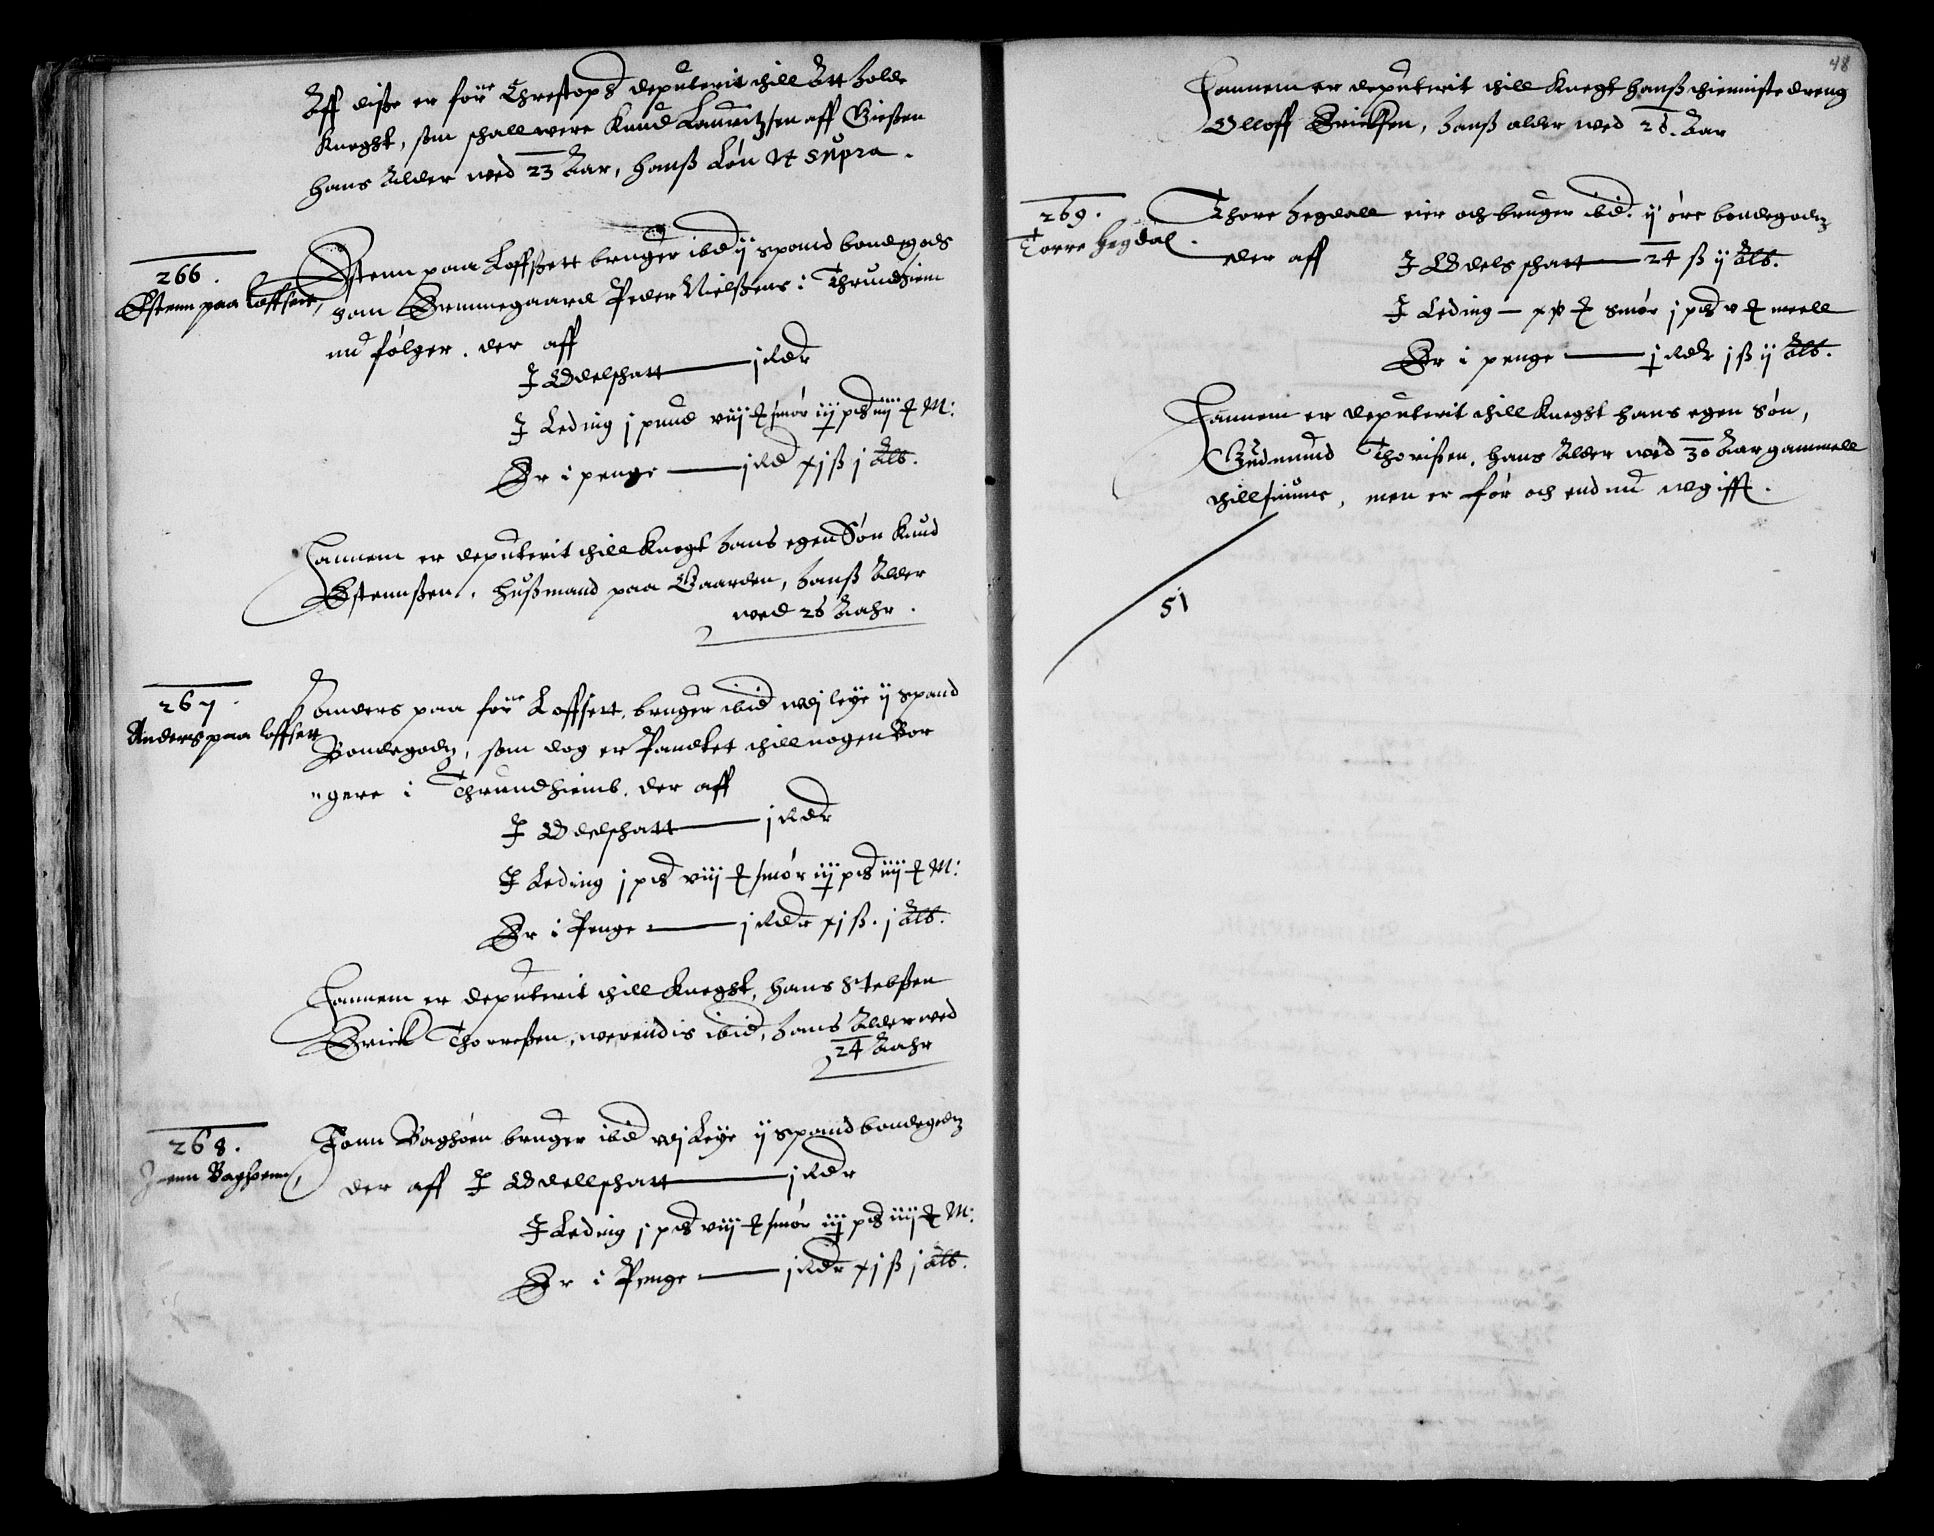 Aff disse er förne Christopher deputerit thill Att holde
Kneght, som schall were Knud Lauritzsen aff Giessen
hans Alder wed 23 Aar, hanss Lön Vt supra.
266.
Østenn paa Loffsett,
Østenn paa Loffssett bruger ibid ij spand bondegods
som Brinnegaard Peder Nielssens i Thrundhiem
nu følger. der aff
J Oddelschatt — j Rdr
J Leding j pund viij ℔ smör iij pd iiij ℔ M:
Er i penge — j Rd xj ß j Alb.
Hannem er deputerit thill Knegt hans egen Sön Knud
Østennssen, hussmand paa Gaarden, hanss Alder
wed 26 Aahr.
267.
Anders paa loffsett
Anders paa förne Loffsett, bruger ibid wdj leye ij spand
Bondegodz, som dog er Pandtet thill nogen Bor
"gere i Thrundhiemb. der aff
J Oddelschatt — j Rdr
J Leding j pd viij ℔ smör iij pd iiij ℔ M:
Er i Penge — j Rdr xj ß. j Alb.
Hannem er deputerit thill Kneght, hans Stebssen
Erick Thorressen, werendis ibid, hans Alder wed
24 Aahr
268.
Joenn Baghoenn,
Jonn Baghöen bruger ibid wdj Leye ij spand bondegodz
der aff J Oddellschatt — j Rdr
J Leding j pd viij ℔ smör iij pd iiij ℔ M:
Er i Penge — j Rdr xj ß j alb.
48
Hannem er deputerit thill Knegt hanss thienniste dreng
Olloff Ericksen, hanss alder wed 26. Aar
269.
Torre Hegdal.
Thore Hegdall eier och bruger ibid. ij öre bondegodz
der aff
J Oddelsschatt — 24 ß ij Alb.
J Leding — xv ℔ smör j pd v ℔ meell
Er i penge — j Rdr j ß ij Alb.
Hannem er deputerit thill Kneght hans egen Sön,
Gudmund Thorissen, hans Alder wed 30 Aar gammell
thillsiunne, men er för och endnu wgifft.
51